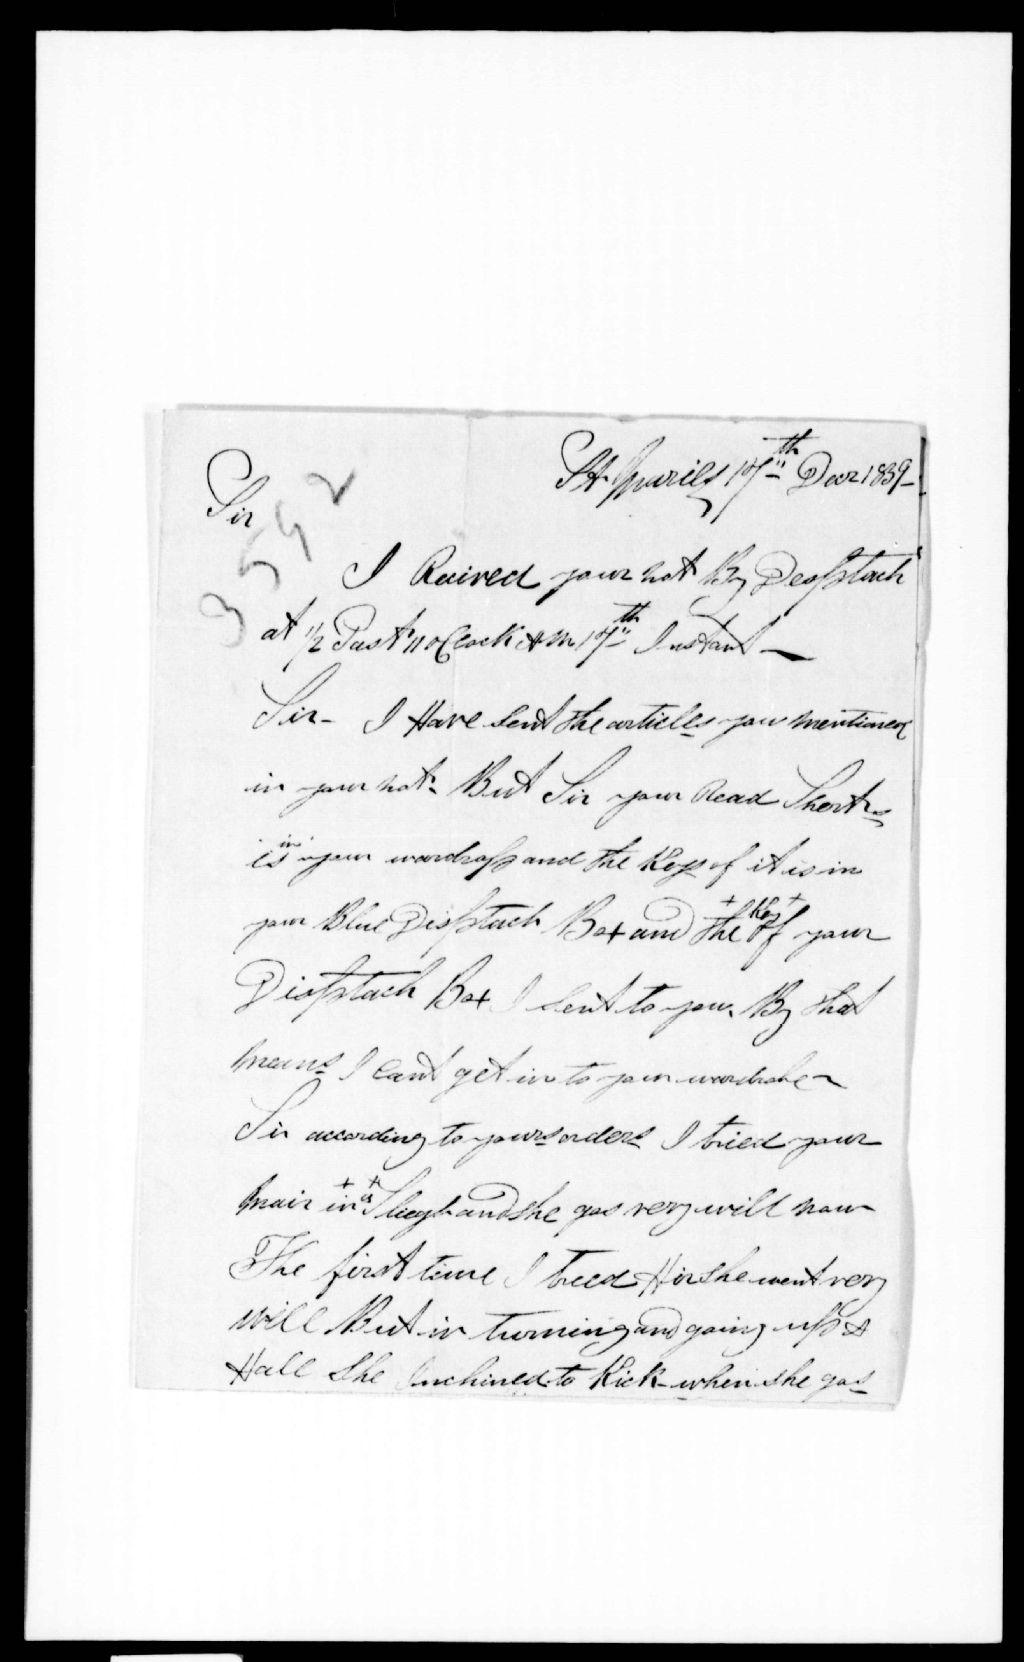 St 17th Decr 1839
Sir
3592
I Recived your not By Despstach
at 1/2 Past 11 oClock AM 17th Instant
Sir - I Have sent the articles you mentioned
in your not. But Sir your Read Shorts
is in your wardrass and the Key of it is in
your Blue Dispstach Box and the Key of your
Dispstach Box I sent to you. By that
means I cant get in to your wardrobe
Sir according to yours orders I tried your
mair in a Sleegh and she gos very will now
The first time I treed Hir she went very
will But in turning and going upp a
Hall she Inchined to Kick when she gos